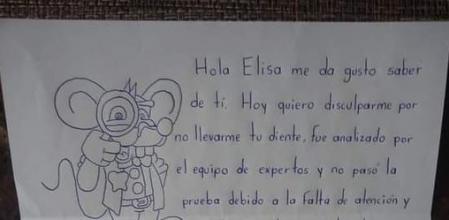 Hola Elisa me da gusto saber
de ti. Hoy quiero disculparme por
no llevarme tu diente, fue analizado por
el equipo de expertos y no pasó la
prueba debido a la falta de atención y